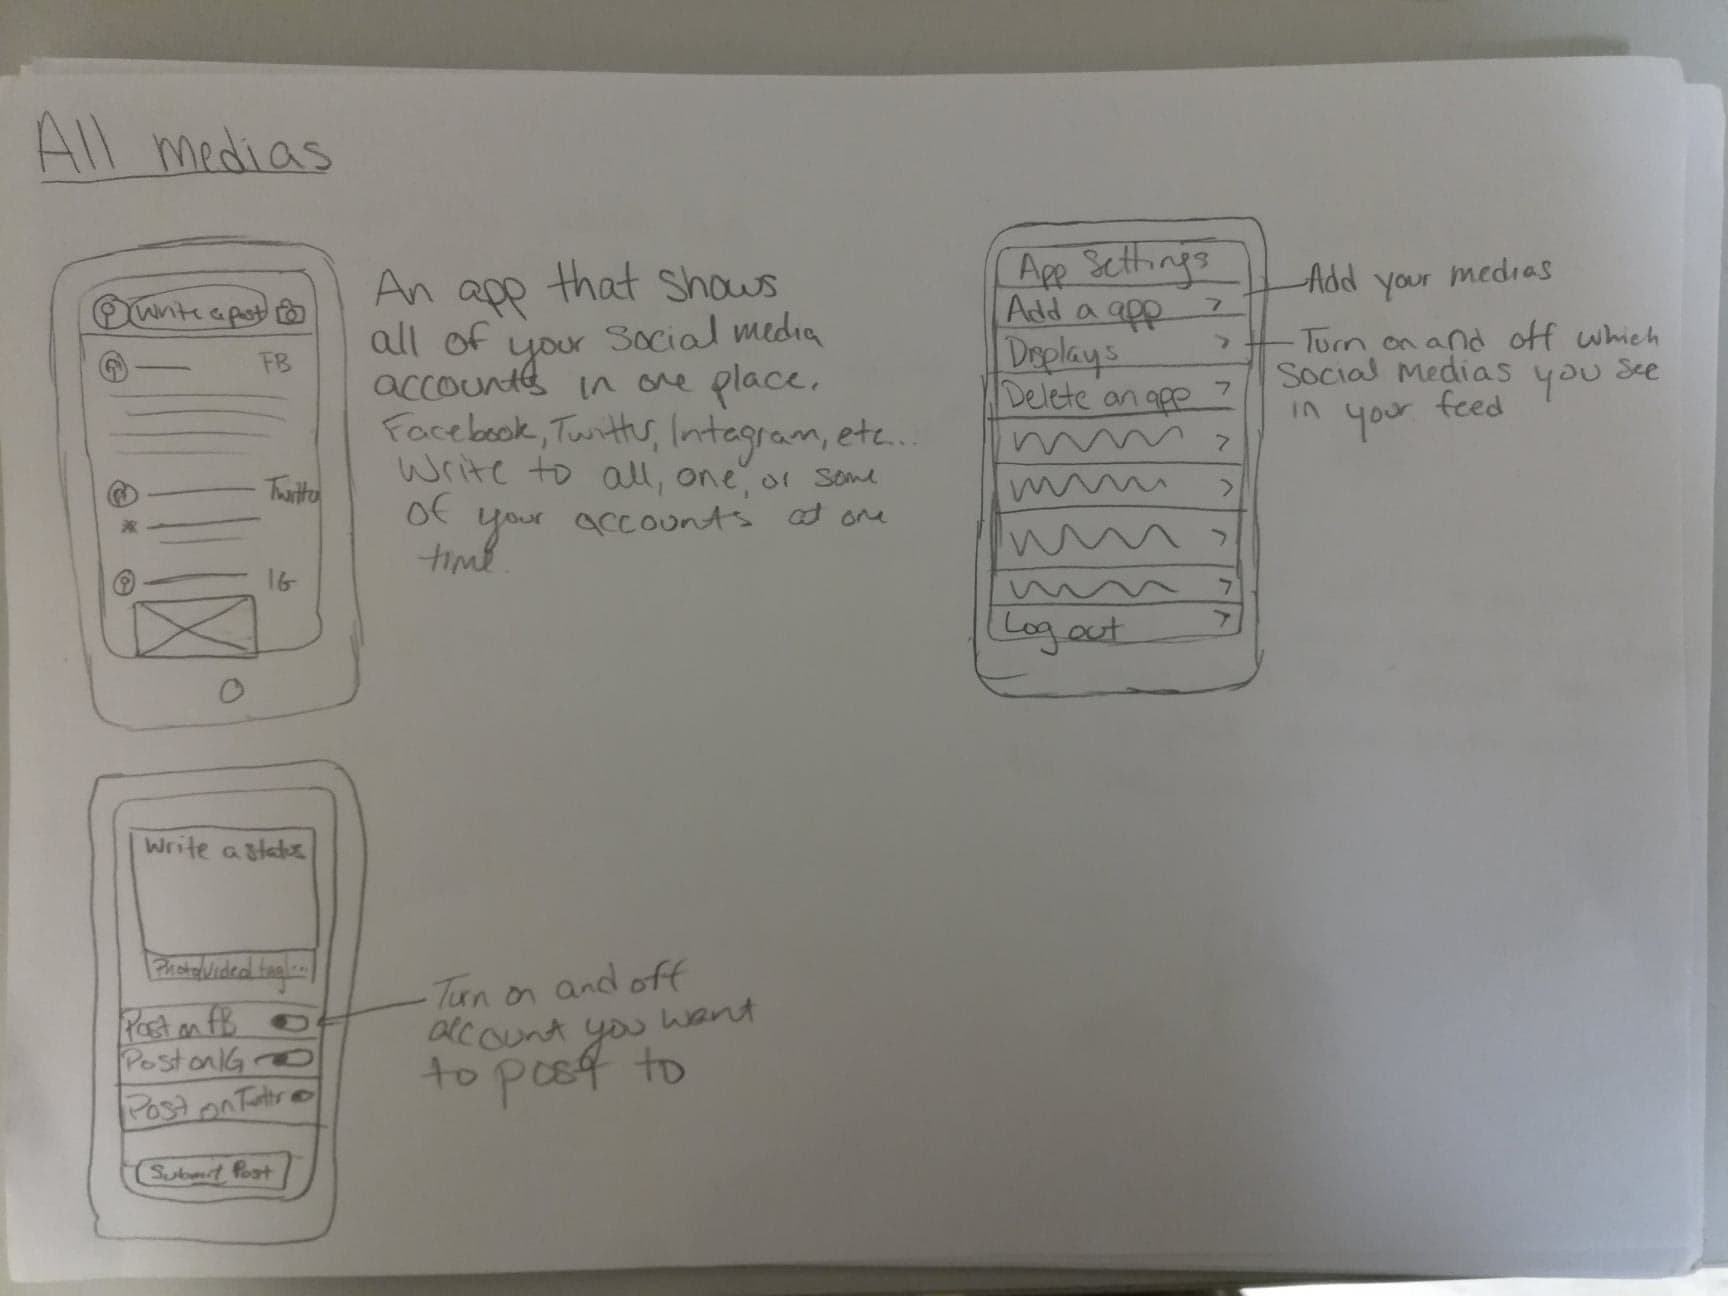 All medias
Write a post
FB
Twitter
IG
An app that shows
all of your social media
accounts in one place.
Facebook, Twitter, Intagram, etc...
Write to all, one, or some
of your accounts at one
time.
App Settings
Add a app >
Displays >
Delete an app >
>
>
>
>
Log out >
Add your medias
Turn on and off which
social medias you see
in your feed
Write a status
Photo/Video/tag/...
Post on FB
Post on IG
Post on Twitter
Submit Post
Turn on and off
account you want
to post to